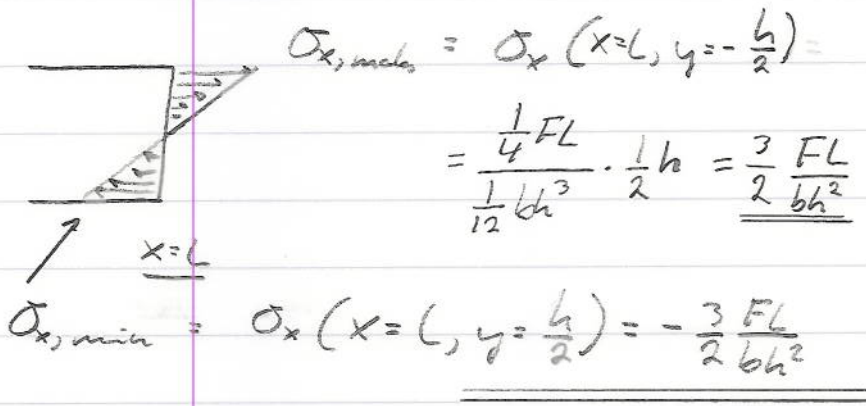 σx, maks = σx (x=L, y=-h/2) =
= (1/4 FL)/(1/12 bh³) · 1/2 h = 3/2 FL/bh²
x=L
σx, min = σx (x=L, y=h/2) = -3/2 FL/bh²